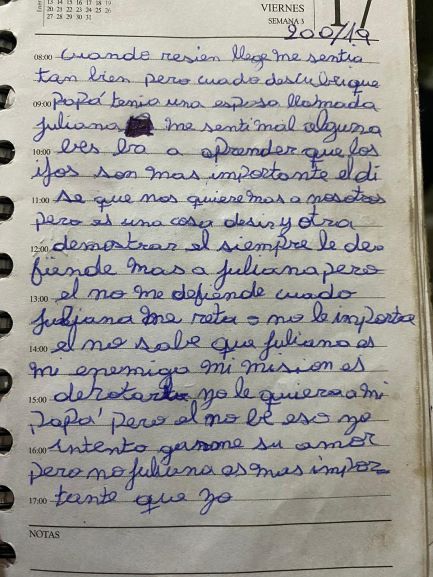 Ene
13 14 15 16 17 18 19
20 21 22 23 24 25 26
27 28 29 30 31
VIERNES
SEMANA 3
17
200/19
08:00 cuando resien llege me sentia
tan bien pero cuado descubri que
09:00 papá tenia una esposa llamada
juliana me senti mal alguna
10:00 bes ba a aprender que los
ijos son mas importante el di
11:00 se que nos quiere mas a nosotros
pero es una cosa desir y otra
12:00 demostrar el siempre le de
fiende mas a juliana pero
13:00 el no me defiende cuado
juliana me reta o no le importa
14:00 el no sabe que juliana es
mi enemiga mi mision es
15:00 derotarla yo le quiero a mi
papá pero el no be eso yo
16:00 intento ganarme su amor
pero no juliana es mas impor-
17:00 tante que yo
NOTAS